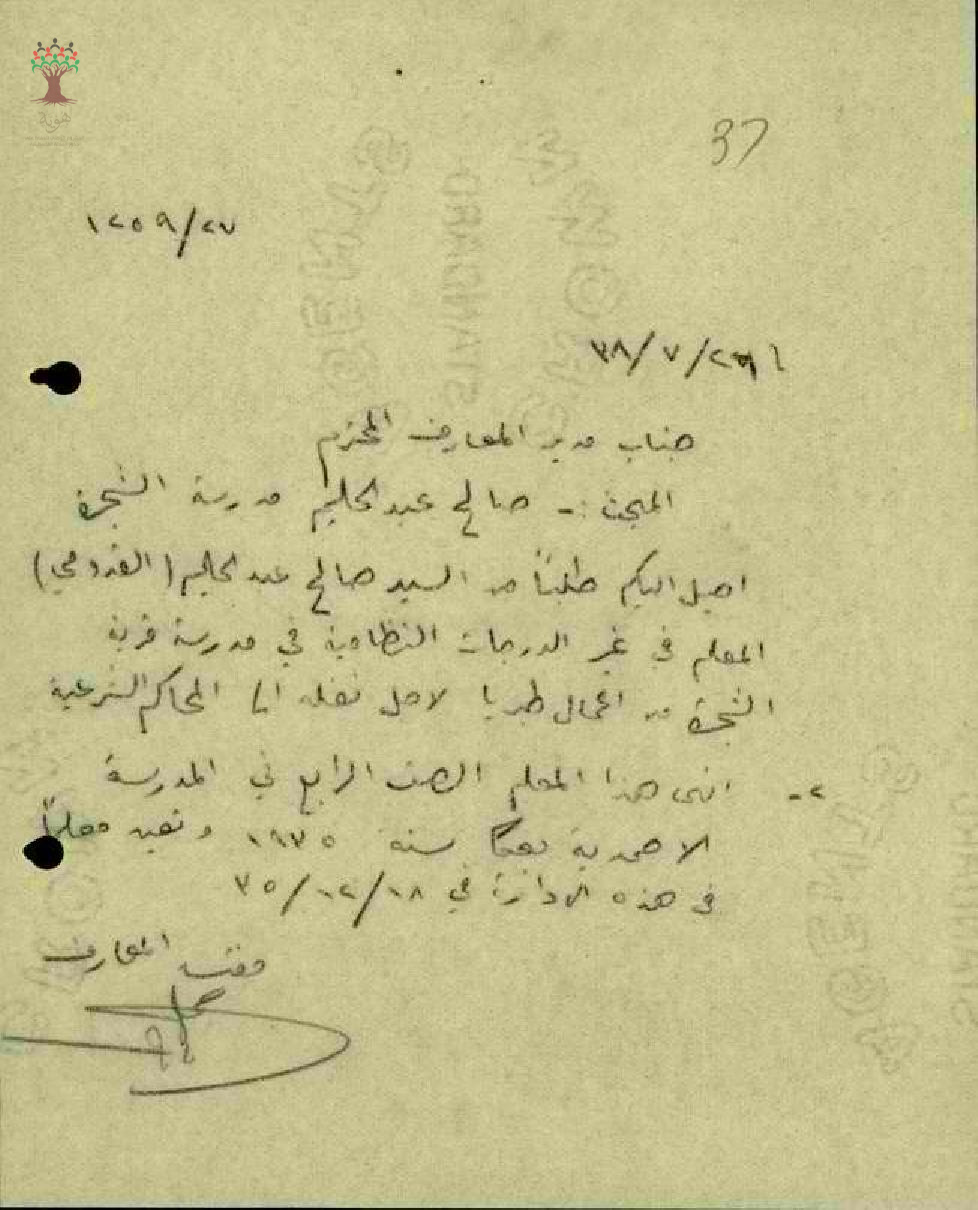 هوية
37
١٢٥٩/٢٧
٣٨/٧/٢
جناب مدير المعارف المحترم
المبحث :- صالح عبدالحليم مدرسة الشجرة
احيل اليكم طلباً من السيد صالح عبدالحليم (القدومي)
المعلم في غير الدرجات النظامية في مدرسة قرية
الشجرة من اعمال طبريا لاجل نقله الى المحاكم الشرعية
٢- انهى هذا المعلم الصف الرابع في المدرسة
الاحمدية بعكا سنة ١٩٣٥ وتعين معلماً
في هذه الادارة في ٣٥/١٢/١٨
مفتش المعارف